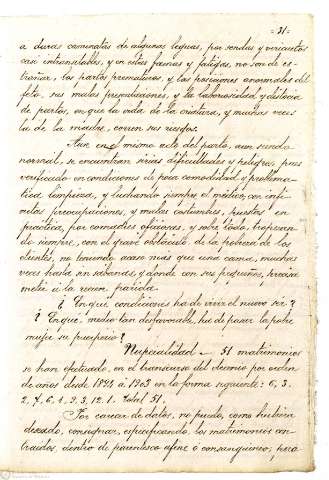 -31-
a duras caminatas de algunas leguas, por sendas y vericuetos
casi intransitables, y en estas faenas y fatigas, no son de es-
trañar, los partos prematuros, y las posiciones anormales del
feto, sus malas presentaciones, y la laboriosidad y distocia
de partos, en que la vida de la criatura, y muchas veces
la de la madre, corren sus riesgos.
Aun en el mismo acto del parto, aun siendo
normal, se encuentran serias dificultades y peligros, pues
verificado en condiciones de poca comodidad y problema-
tica limpieza, y luchando siempre el médico, con infi-
nitas preocupaciones, y malas costumbres, puestas en
practica, por comadres oficiosas, y sobre todo, tropezan-
do siempre, con el grave obstaculo de la pobreza de los
clientes, no teniendo acaso mas que una cama, muchas
veces hasta sin sabanas, y donde con sus pequeños, precisa
meter á la recien parida.
¿En qué condiciones ha de vivir el nuevo ser?
¿En qué medio tan desfavorable, ha de pasar la pobre
mujer su puerperio?
Nupcialidad - 51 matrimonios
se han efectuado, en el transcurso del decenio por orden
de años desde 1894 á 1903 en la forma siguiente: 6, 3,
2, 7, 6, 4, 9, 3, 12, 1. Total 51.
Por carecer de datos, no puedo, como hubiera
deseado, consignar, especificando, los matrimonios con-
traidos, dentro de parentesco afine o consanguineo; pero